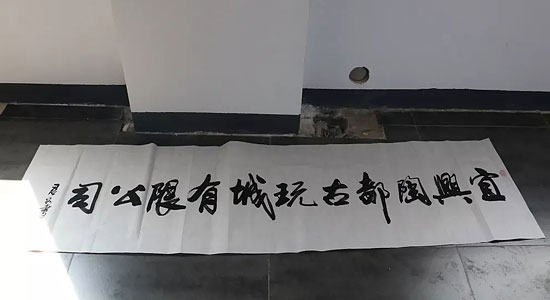 宜興陶都古玩城有限公司